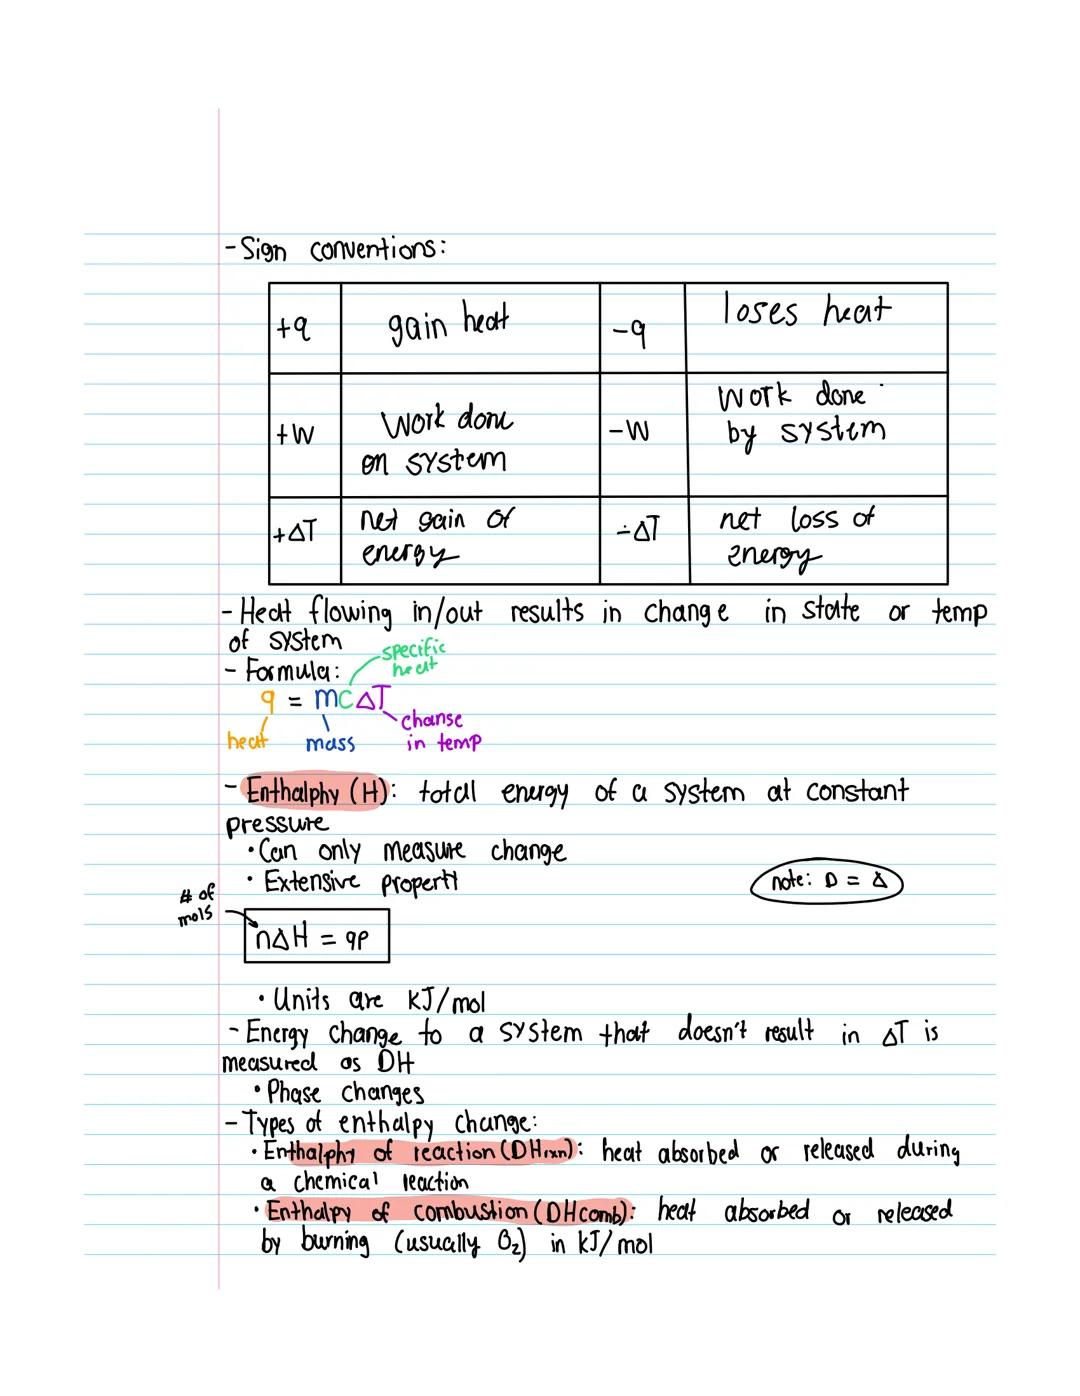 - Sign conventions:
+q gain heat -q loses heat
+W Work done on system -W Work done by system
+ΔT net gain of energy -ΔT net loss of energy
- Heat flowing in/out results in change in state or temp
of system
- Formula:
specific
heat
q = mcΔT
heat
mass
change
in temp
- Enthalphy (H): total energy of a system at constant
pressure
• Can only measure change
• Extensive property
note: D = Δ
# of
mols
nΔH = qp
• Units are kJ/mol
- Energy change to a system that doesn't result in ΔT is
measured as DH
• Phase changes
- Types of enthalpy change:
• Enthalphy of reaction (DHrxn): heat absorbed or released during
a chemical reaction
• Enthalpy of combustion (DHcomb): heat absorbed or released
by burning (usually O₂) in kJ/mol